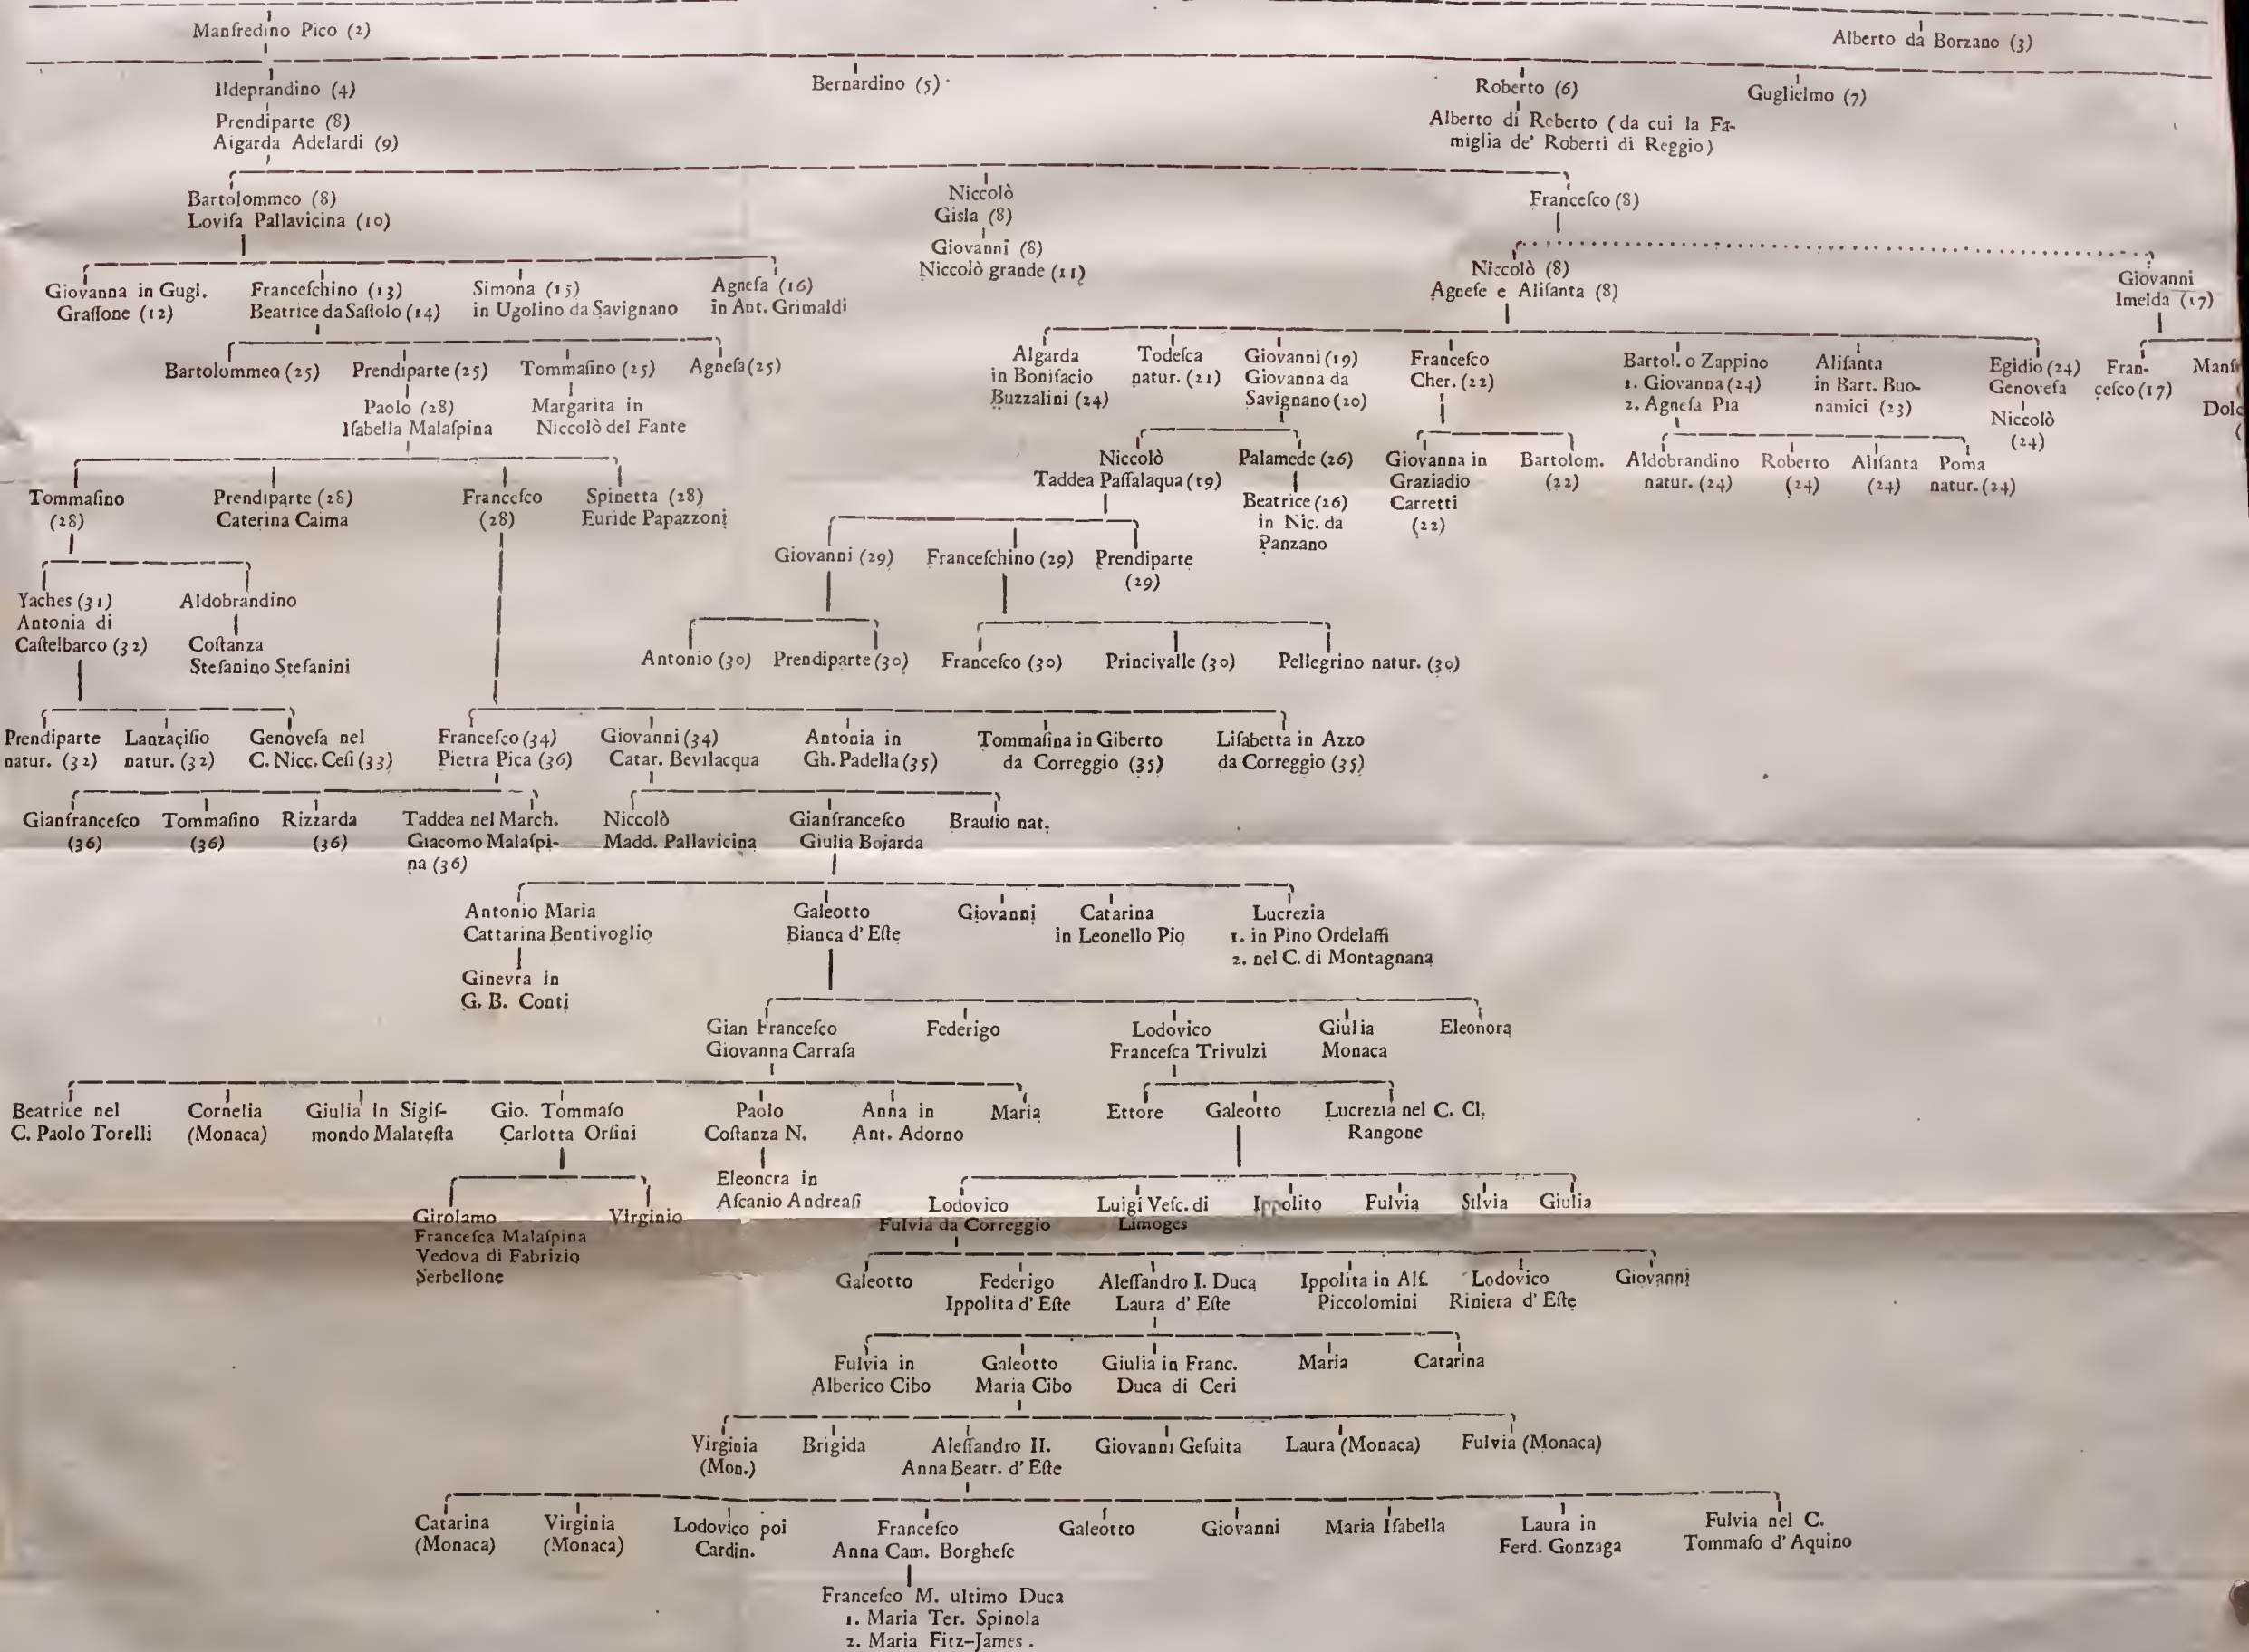 Manfredino Pico (2)
Alberto da Borzano (3)
Ildeprandino (4)
Bernardino (5)
Roberto (6)
Guglielmo (7)
Prendiparte (8)
Aigarda Adelardi (9)
Alberto di Roberto (da cui la Fa-
miglia de' Roberti di Reggio)
Bartolommeo (8)
Loviſa Pallavicina (10)
Niccolò
Gisla (8)
Franceſco (8)
Giovanni (8)
Niccolò grande (11)
Niccolò (8)
Agneſe e Aliſanta (8)
Giovanni
Imelda (17)
Giovanna in Gugl.
Graſſone (12)
Franceſchino (13)
Beatrice da Saſſolo (14)
Simona (15)
in Ugolino da Savignano
Agneſa (16)
in Ant. Grimaldi
Bartolommeo (25)
Prendiparte (25)
Tommaſino (25)
Agneſa (25)
Algarda
in Bonifacio
Buzzalini (24)
Todeſca
natur. (21)
Giovanni (19)
Giovanna da
Savignano (20)
Franceſco
Cher. (22)
Bartol. o Zappino
1. Giovanna (24)
2. Agneſa Pia
Aliſanta
in Bart. Buo-
namici (23)
Egidio (24)
Genoveſa
Niccolò
(24)
Fran-
ceſco (17)
Paolo (28)
Iſabella Malaſpina
Margarita in
Niccolò del Fante
Tommaſino
(28)
Prendiparte (28)
Caterina Caima
Franceſco
(28)
Spinetta (28)
Euride Papazzoni
Niccolò
Taddea Paſſalaqua (19)
Palamede (26)
Beatrice (26)
in Nic. da
Panzano
Giovanna in
Graziadio
Carretti
(22)
Bartolom.
(22)
Aldobrandino
natur. (24)
Roberto
(24)
Aliſanta
(24)
Poma
natur. (24)
Giovanni (29)
Franceſchino (29)
Prendiparte
(29)
Yaches (31)
Antonia di
Caſtelbarco (32)
Aldobrandino
Coſtanza
Stefanino Stefanini
Antonio (30)
Prendiparte (30)
Franceſco (30)
Princivalle (30)
Pellegrino natur. (30)
Prendiparte
natur. (32)
Lanzaçiſio
natur. (32)
Genoveſa nel
C. Nicc. Ceſi (33)
Franceſco (34)
Pietra Pica (36)
Giovanni (34)
Catar. Bevilacqua
Antonia in
Gh. Padella (35)
Tommaſina in Giberto
da Correggio (35)
Liſabetta in Azzo
da Correggio (35)
Gianfranceſco
(36)
Tommaſino
(36)
Rizzarda
(36)
Taddea nel March.
Giacomo Malaſpi-
na (36)
Niccolò
Madd. Pallavicina
Gianfranceſco
Giulia Bojarda
Braulio nat.
Antonio Maria
Cattarina Bentivoglio
Galeotto
Bianca d' Eſte
Giovanni
Catarina
in Leonello Pio
Lucrezia
1. in Pino Ordelaffi
2. nel C. di Montagnana
Ginevra in
G. B. Conti
Gian Franceſco
Giovanna Carrafa
Federigo
Lodovico
Franceſca Trivulzi
Giulia
Monaca
Eleonora
Beatrice nel
C. Paolo Torelli
Cornelia
(Monaca)
Giulia in Sigiſ-
mondo Malateſta
Gio. Tommaſo
Carlotta Orſini
Paolo
Coſtanza N.
Anna in
Ant. Adorno
Maria
Ettore
Galeotto
Lucrezia nel C. Cl.
Rangone
Girolamo
Franceſca Malaſpina
Vedova di Fabrizio
Serbellone
Virginio
Eleonora in
Aſcanio Andreaſi
Lodovico
Fulvia da Correggio
Luigi Veſc. di
Limoges
Ippolito
Fulvia
Silvia
Giulia
Galeotto
Federigo
Ippolita d' Eſte
Aleſſandro I. Duca
Laura d' Eſte
Ippolita in Alſ.
Piccolomini
Lodovico
Riniera d' Eſte
Giovanni
Fulvia in
Alberico Cibo
Galeotto
Maria Cibo
Giulia in Franc.
Duca di Ceri
Maria
Catarina
Virginia
(Mon.)
Brigida
Aleſſandro II.
Anna Beatr. d' Eſte
Giovanni Geſuita
Laura (Monaca)
Fulvia (Monaca)
Catarina
(Monaca)
Virginia
(Monaca)
Lodovico poi
Cardin.
Franceſco
Anna Cam. Borgheſe
Galeotto
Giovanni
Maria Iſabella
Laura in
Ferd. Gonzaga
Fulvia nel C.
Tommaſo d' Aquino
Franceſco M. ultimo Duca
1. Maria Ter. Spinola
2. Maria Fitz-James.